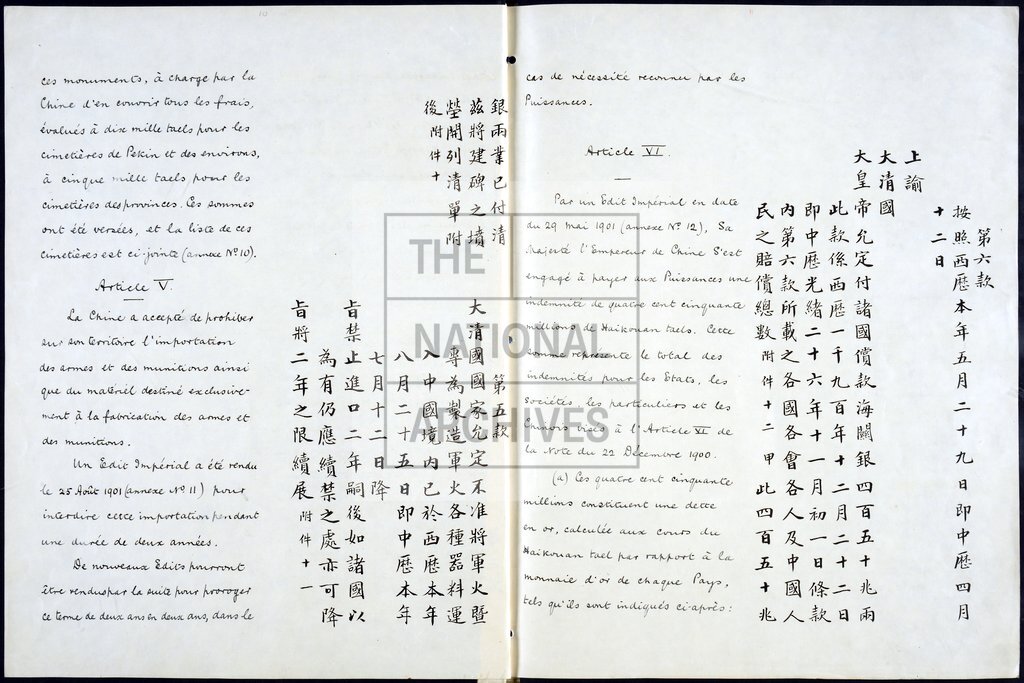 ces monuments, à charge par la
Chine d'en couvrir tous les frais,
évalués à dix mille taels pour les
cimetières de Pekin et des environs,
à cinque mille taels pour les
cimetières des provinces. Ces sommes
ont été versées, et la liste de ces
cimetières est ci-jointe (annexe No 10).
Article V.
La Chine a accepté de prohiber
sur son territoire l'importation
des armes et des munitions ainsi
que du matériel destiné exclusive-
ment à la fabrication des armes et
des munitions.
Un Edit Impérial a été rendu
le 25 Août 1901 (annexe No 11) pour
interdire cette importation pendant
une durée de deux années.
De nouveaux Edits pourront
être rendus par la suite pour proroger
ce terme de deux ans en deux ans, dans le
銀兩業已付清
茲將建碑之墳
塋開列清單附
後附件十
第五款
大清國國家允定不准將軍火暨
專為製造軍火各種器料運
入中國境內已於西歷本年
八月二十五日即中歷本年
七月十二日降
旨禁止進口二年嗣後如諸國以
為有仍應續禁之處亦可降
旨將二年之限續展附件十一
cas de nécessité reconnue par les
Puissances.
Article VI.
Par un Edit Impérial en date
du 29 mai 1901 (annexe No 12), Sa
Majesté l'Empereur de Chine s'est
engagé à payer aux Puissances une
indemnité de quatre cent cinquante
millions de Haikouan taels. Cette
somme représente le total des
indemnités pour les Etats, les
sociétés, les particuliers et les
Chinois visés à l'Article VI de
la Note du 22 Décembre 1900.
(a) Ces quatre cent cinquante
millions constituent une dette
en or, calculée aux cours du
Haikouan tael par rapport à la
monnaie d'or de chaque Pays,
tels qu'ils sont indiqués ci-après:
第六款
按照西歷本年五月二十九日即中歷四月
十二日
上諭
大清國
大皇帝允定付諸國償款海關銀四百五十兆兩
此款係西歷一千九百年十二月二十二日
即中歷光緒二十六年十一月初一日條款
內第六款所載之各國各會各人及中國人
民之賠償總數附件十二甲此四百五十兆
THE
NATIONAL
ARCHIVES